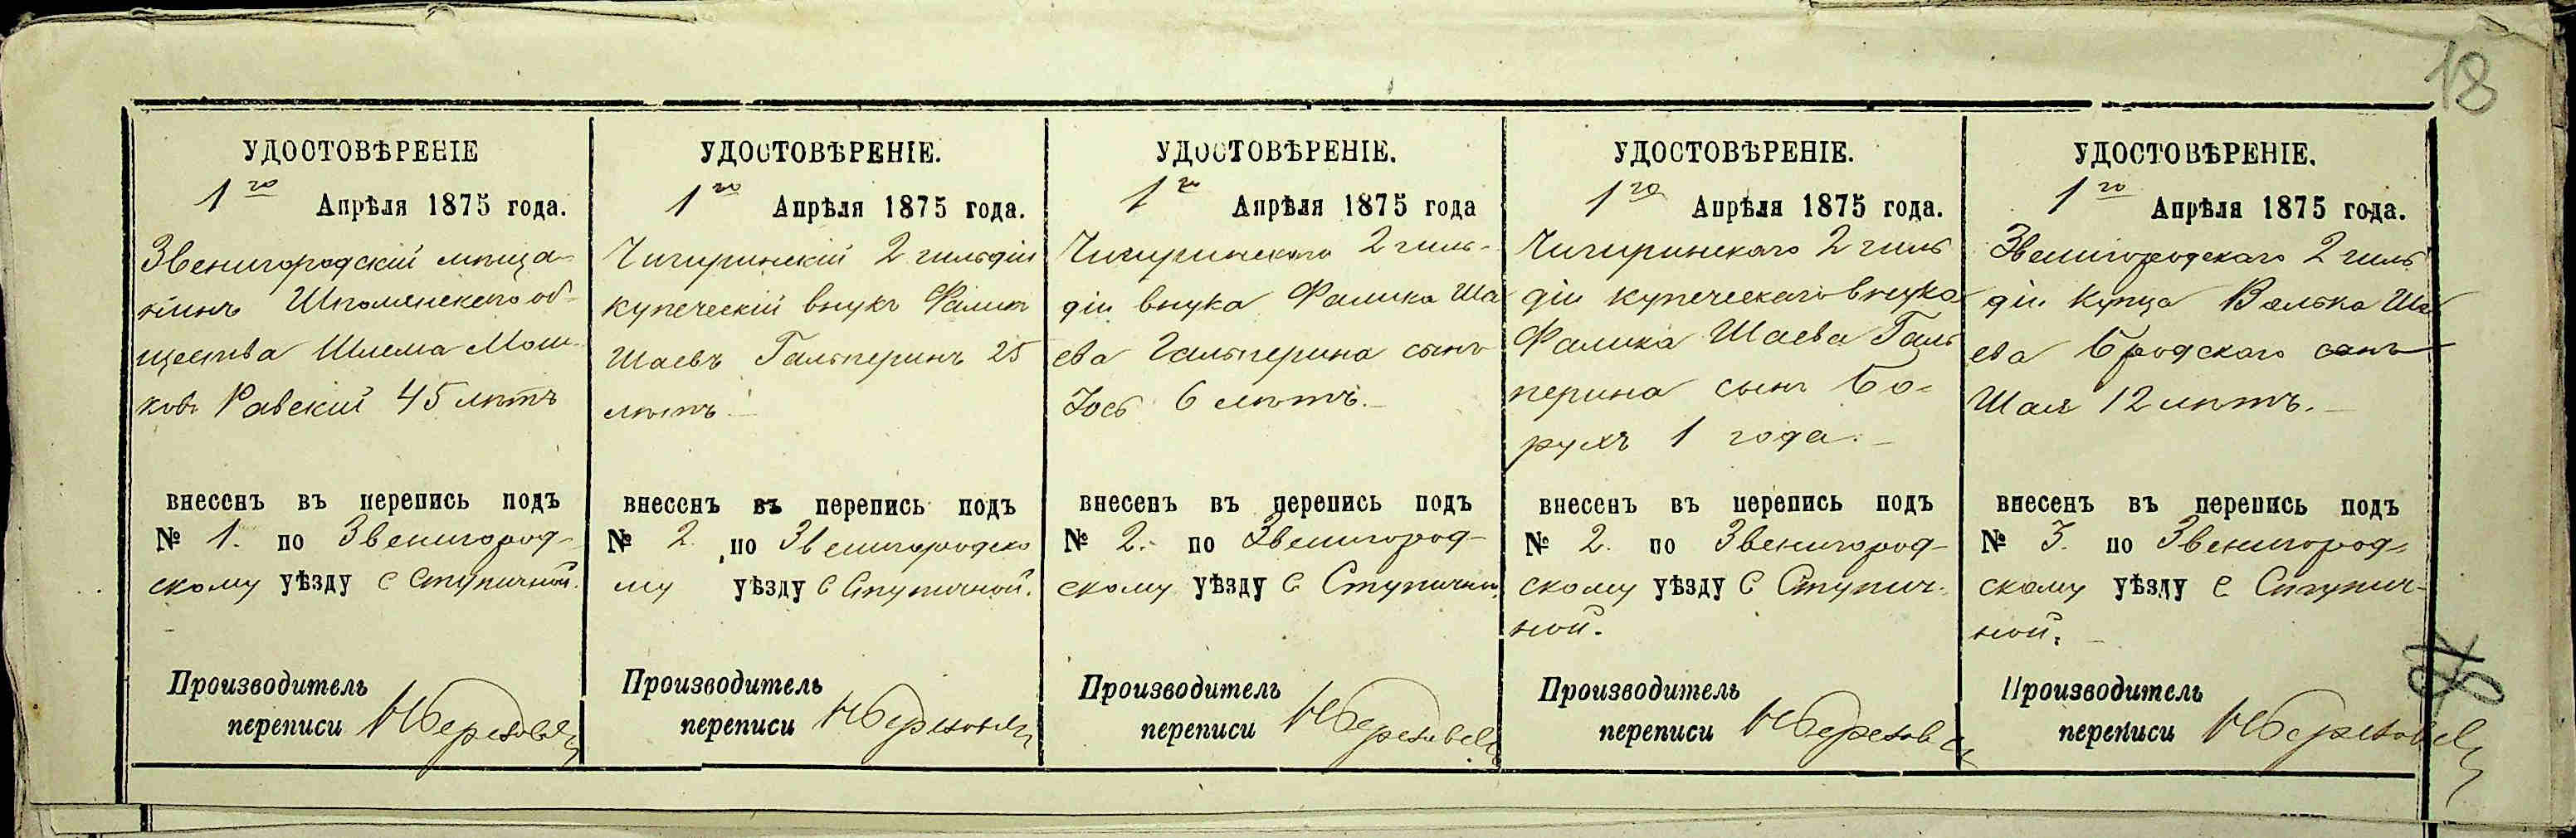 18
УДОСТОВѢРЕНІЕ
1го Апрѣля 1875 года.
Звенигородскій мѣща-
нинъ Шполянскаго об-
щества Шлема Мош-
ковъ Равскій 45 лѣтъ
внесенъ въ перепись подъ
№ 1. по Звенигород-
скому уѣзду с Ступичной.
Производитель
переписи
УДОСТОВѢРЕНІЕ.
1го Апрѣля 1875 года.
Чигиринскій 2 гильдіи
купеческій внукъ Фаликъ
Шаевъ Гальперинъ 25
лѣтъ.
внесенъ въ перепись подъ
№ 2. по Звенигородско
му уѣзду с Ступичной.
Производитель
переписи
УДОСТОВѢРЕНІЕ.
1го Апрѣля 1875 года
Чигиринскаго 2 гиль-
діи внука Фалика Ша
ева Гальперина сынъ
Іось 6 лѣтъ.
внесенъ въ перепись подъ
№ 2. по Звенигород-
скому уѣзду с Ступичной.
Производитель
переписи
УДОСТОВѢРЕНІЕ.
1го Апрѣля 1875 года.
Чигиринскаго 2 гиль
діи купеческаго внука
Фалика Шаева Галь
перина сынъ Бо-
рухъ 1 года.
внесенъ въ перепись подъ
№ 2. по Звенигород-
скому уѣзду с Ступич-
ной.
Производитель
переписи
УДОСТОВѢРЕНІЕ.
1го Апрѣля 1875 года.
Звенигородскаго 2 гиль
діи купца Волька Ша
ева Бродскаго сынъ
Шая 12 лѣтъ.
внесенъ въ перепись подъ
№ 3. по Звенигород-
скому уѣзду с Ступич-
ной.
Производитель
переписи